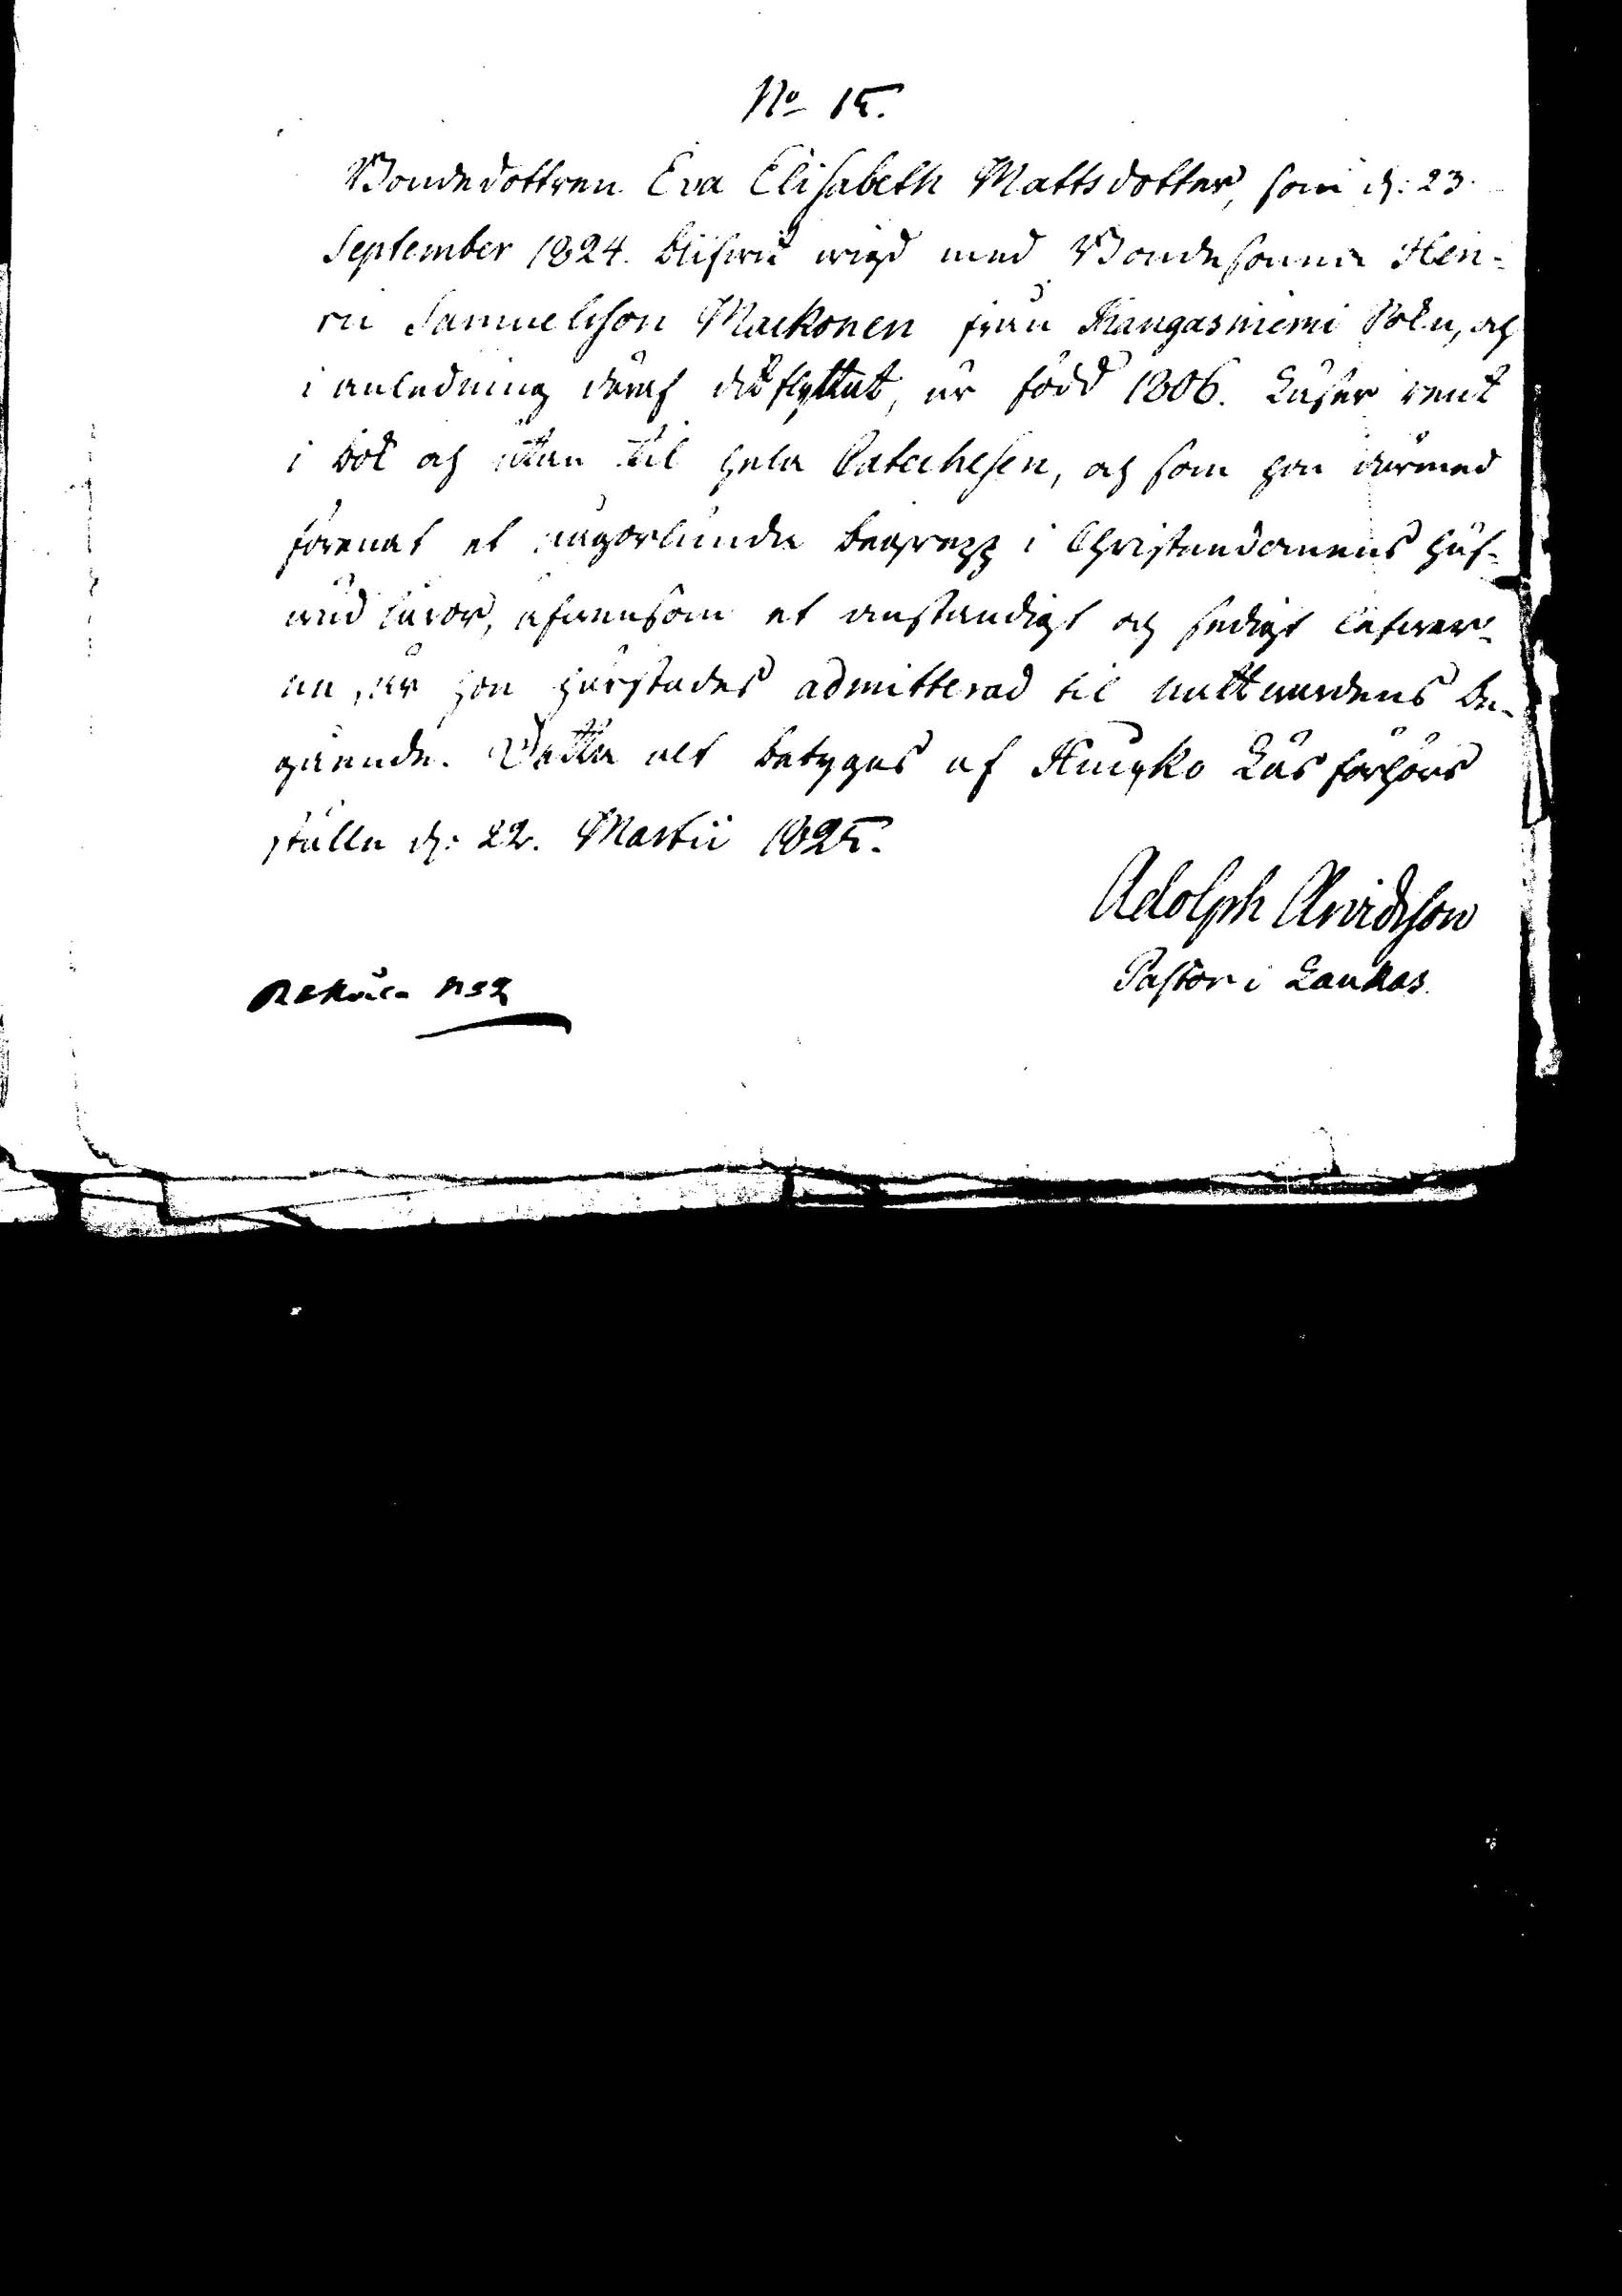 No 15.
Bondedottren Eva Elisabeth Mattsdotter, som d: 23.
September 1824. blifwit wigd med Bondesonen Hen-
ric Samuelsson Maekonen från Kangasniemi Sokn, och
i anledning deraf ditflyttat, är född 1806. Läser rent
i bok och utan til hela Catechesen, och som hon dermed
förenat et någorlunda begrepp i Christendomens huf-
wud läror, äfwensom et anständigt och sedigt lefwer-
ne, är hon härstädes admitterad til nattwardens be-
gående. Detta alt betygas af Läsförhörs
ställe d: 22. Martii 1825.
Adolph Arvidsson
Pastor i Laukas.